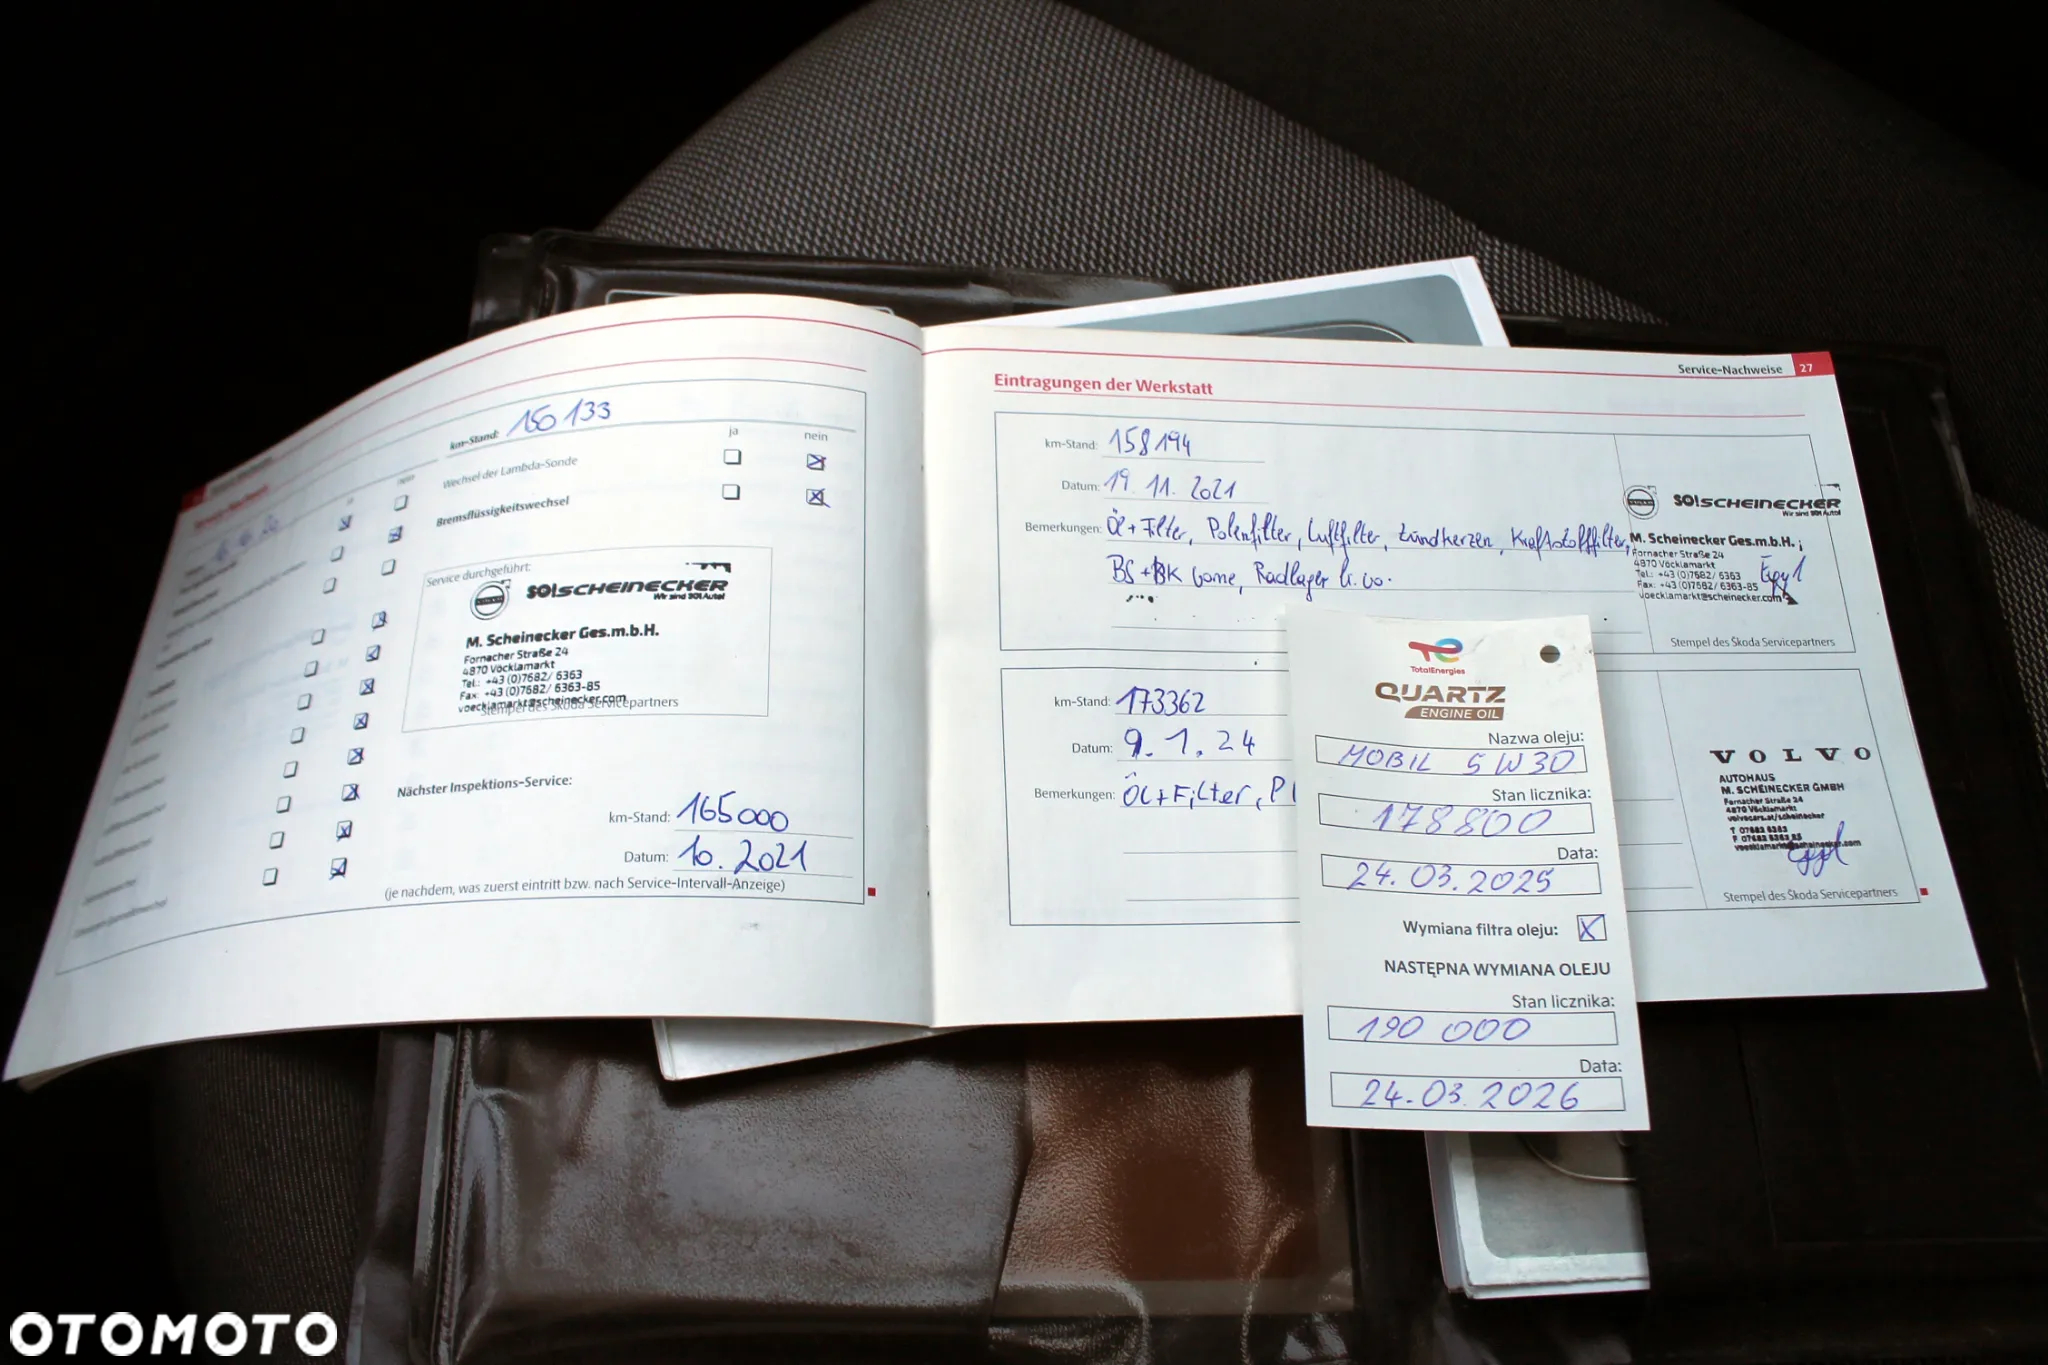 km-Stand: 150 133
ja nein
Wechsel der Lambda-Sonde
Bremsflüssigkeitswechsel
Service durchgeführt:
SOL!SCHEINECKER
Wir sind SOL Auto!
M. Scheinecker Ges.m.b.H.
Fornacher Straße 24
4870 Vöcklamarkt
Tel.: +43 (0)7682/ 6363
Fax: +43 (0)7682/ 6363-85
voecklamarkt@scheinecker.com
Stempel des Škoda Servicepartners
Nächster Inspektions-Service:
km-Stand: 165000
Datum: 10. 2021
(je nachdem, was zuerst eintritt bzw. nach Service-Intervall-Anzeige)
Service-Nachweise 27
Eintragungen der Werkstatt
km-Stand: 158194
Datum: 19. 11. 2021
Bemerkungen: Öl + Filter, Polenfilter, Luftfilter, Zündkerzen, Kraftstofffilter,
BS + BK vorne, Radlager
SOL!SCHEINECKER
Wir sind SOL Auto!
M. Scheinecker Ges.m.b.H.
Fornacher Straße 24
4870 Vöcklamarkt
Tel.: +43 (0)7682/ 6363
Fax: +43 (0)7682/ 6363-85
voecklamarkt@scheinecker.com
Stempel des Škoda Servicepartners
km-Stand: 173362
Datum: 9. 1. 24
Bemerkungen: Öl + Filter,
VOLVO
AUTOHAUS
M. SCHEINECKER GMBH
Fornacher Straße 24
4870 Vöcklamarkt
volvocars.at/scheinecker
T 07682 6363
F 07682 6363 85
voecklamarkt@scheinecker.com
Stempel des Škoda Servicepartners
TotalEnergies
QUARTZ
ENGINE OIL
Nazwa oleju:
MOBIL 5W30
Stan licznika:
178800
Data:
24.03.2025
Wymiana filtra oleju: X
NASTĘPNA WYMIANA OLEJU
Stan licznika:
190 000
Data:
24.03.2026
OTOMOTO